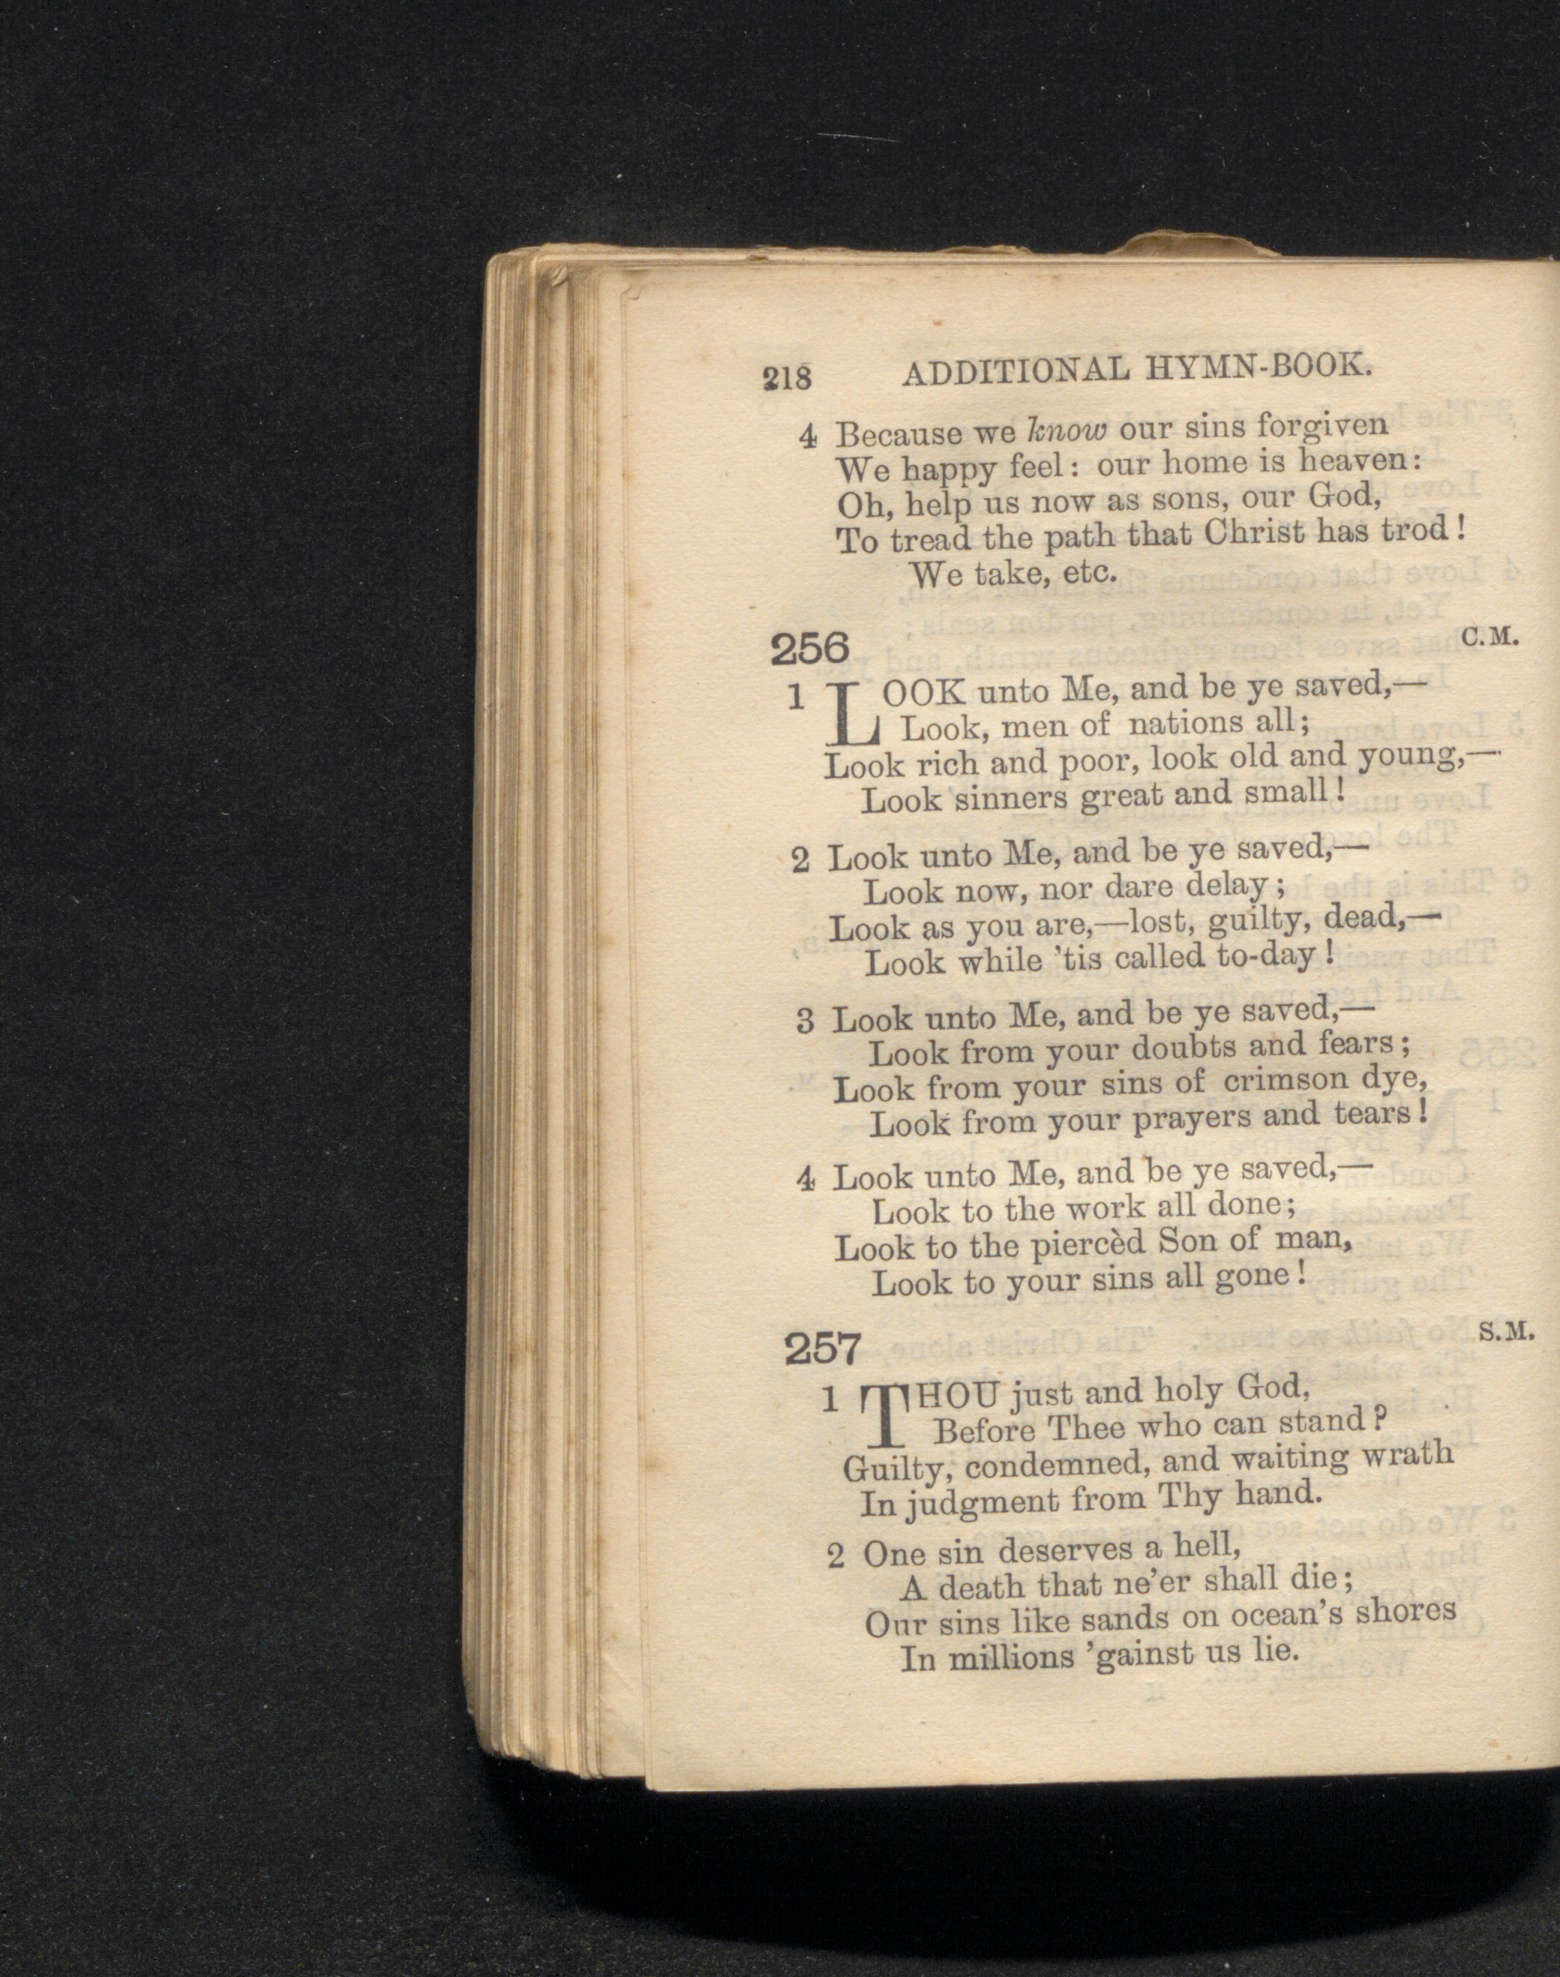 218 ADDITIONAL HYMN-BOOK.
4 Because we know our sins forgiven
We happy feel: our home is heaven:
Oh, help us now as sons, our God,
To tread the path that Christ has trod!
We take, etc.
256 C.M.
1 LOOK unto Me, and be ye saved,—
Look, men of nations all;
Look rich and poor, look old and young,—
Look sinners great and small!
2 Look unto Me, and be ye saved,—
Look now, nor dare delay;
Look as you are,—lost, guilty, dead,—
Look while ’tis called to-day!
3 Look unto Me, and be ye saved,—
Look from your doubts and fears;
Look from your sins of crimson dye,
Look from your prayers and tears!
4 Look unto Me, and be ye saved,—
Look to the work all done;
Look to the piercèd Son of man,
Look to your sins all gone!
257 S.M.
1 THOU just and holy God,
Before Thee who can stand?
Guilty, condemned, and waiting wrath
In judgment from Thy hand.
2 One sin deserves a hell,
A death that ne’er shall die;
Our sins like sands on ocean’s shores
In millions ’gainst us lie.